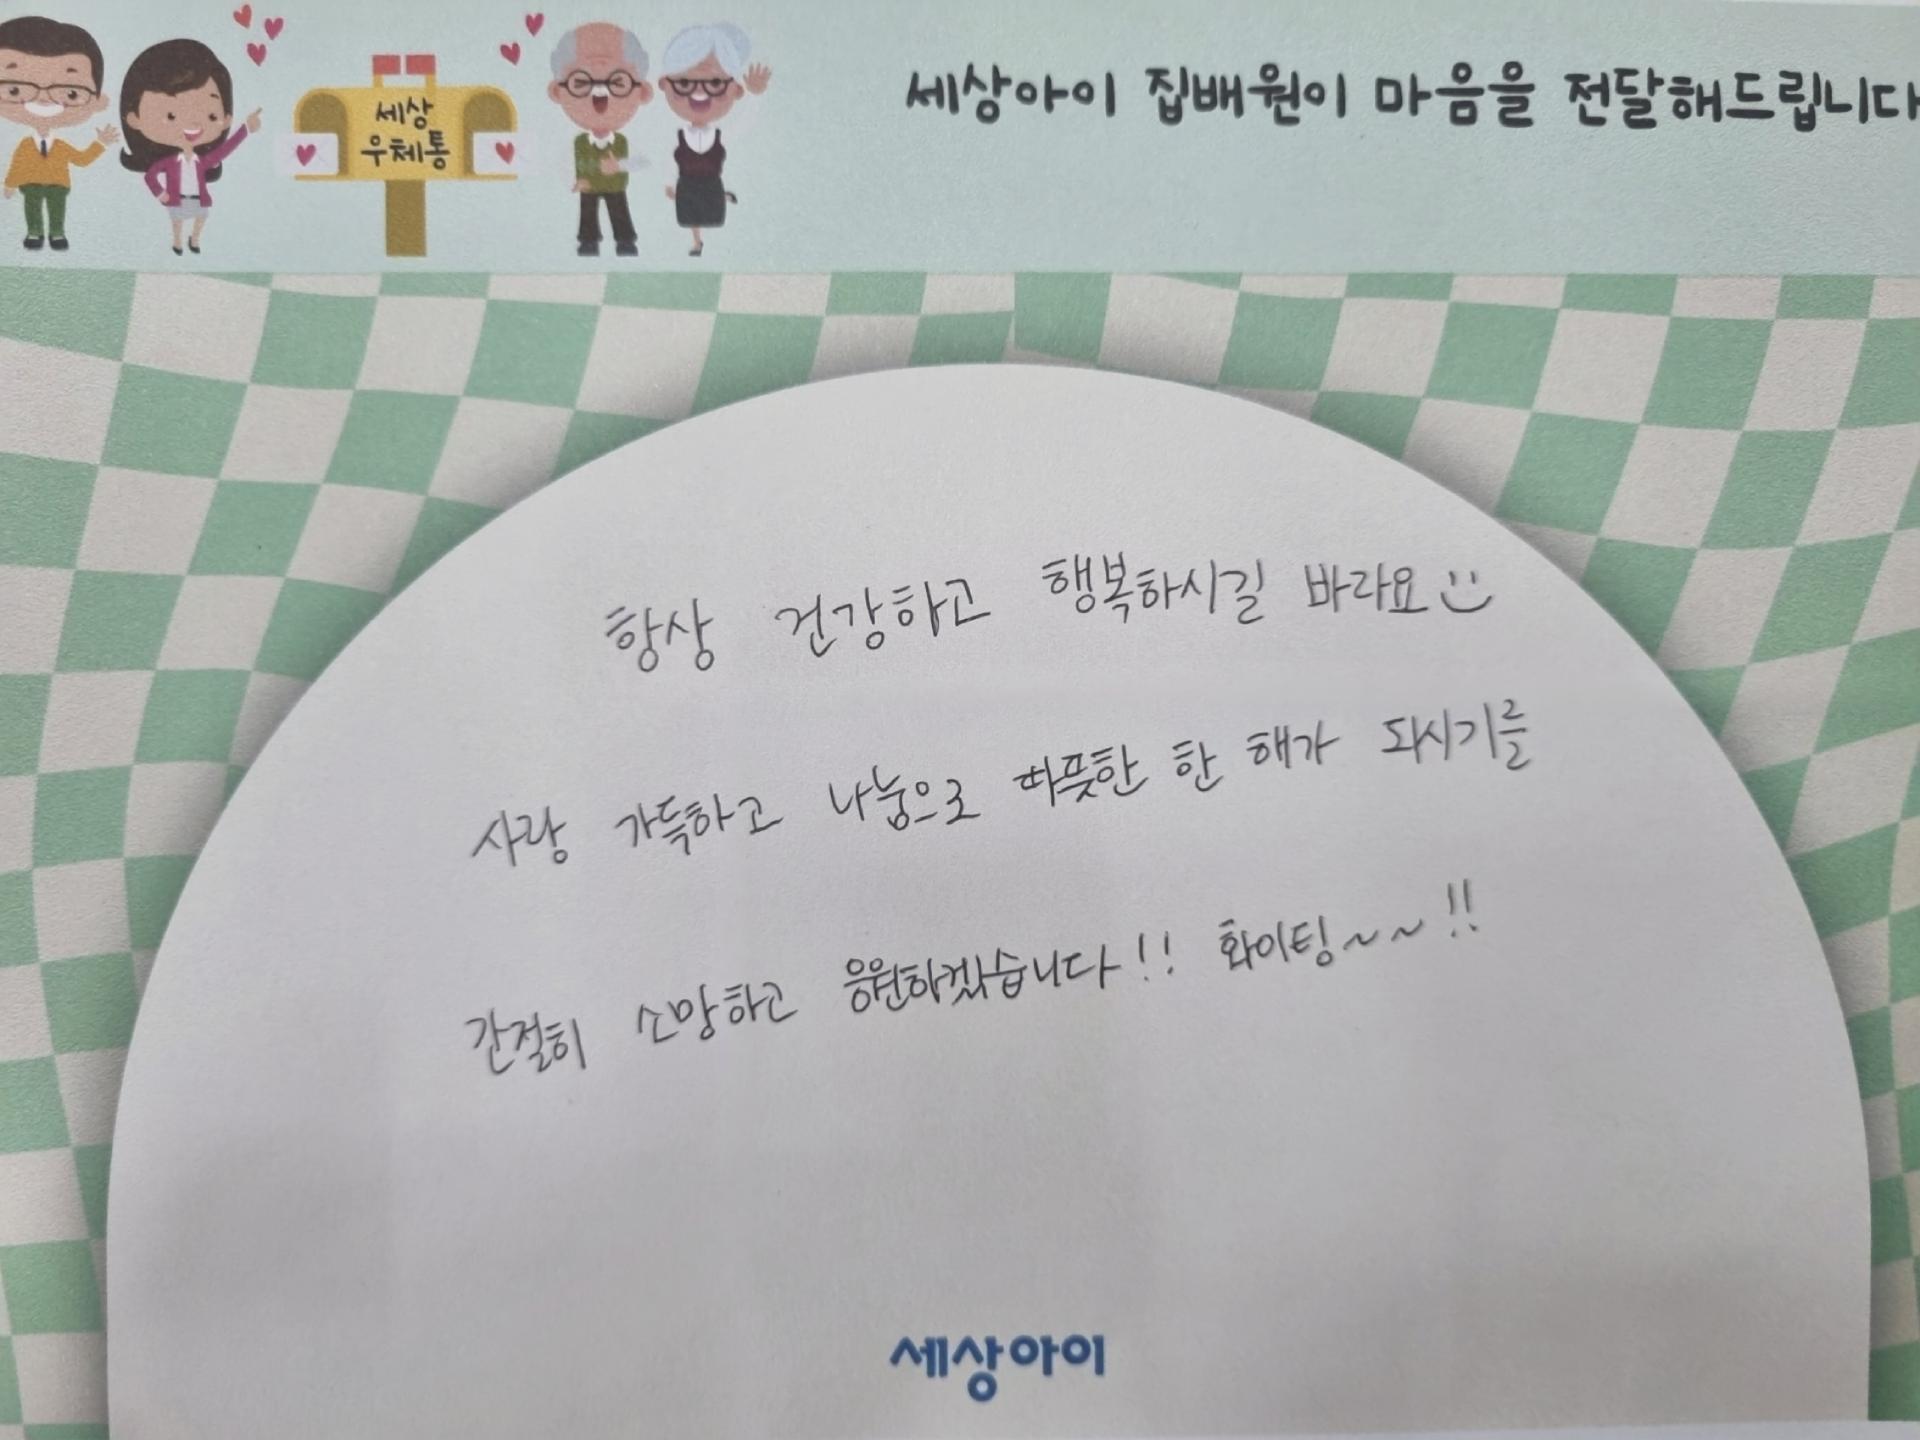 세상아이 집배원이 마음을 전달해드립니다
세상
우체통
항상 건강하고 행복하시길 바라요
사랑 가득하고 나눔으로 따뜻한 한 해가 되시기를
간절히 소망하고 응원하겠습니다!! 화이팅~~!!
세상아이